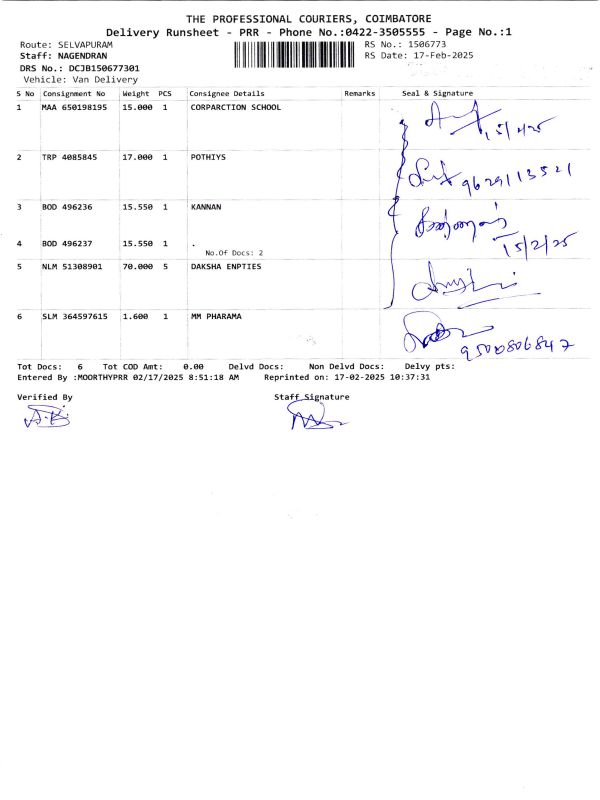 THE PROFESSIONAL COURIERS, COIMBATORE
Delivery Runsheet - PRR - Phone No.:0422-3505555 - Page No.:1
Route: SELVAPURAM RS No.: 1506773
Staff: NAGENDRAN RS Date: 17-Feb-2025
DRS No.: DCJB150677301
Vehicle: Van Delivery
S No Consignment No Weight PCS Consignee Details Remarks Seal & Signature
1 MAA 650198195 15.000 1 CORPARCTION SCHOOL
2 TRP 4085845 17.000 1 POTHIYS
9629113521
3 BOD 496236 15.550 1 KANNAN
4 BOD 496237 15.550 1 .
15/2/25
No.Of Docs: 2
5 NLM 51308901 70.000 5 DAKSHA ENPTIES
6 SLM 364597615 1.600 1 MM PHARAMA
9500806847
Tot Docs: 6 Tot COD Amt: 0.00 Delvd Docs: Non Delvd Docs: Delvy pts:
Entered By :MOORTHYPRR 02/17/2025 8:51:18 AM Reprinted on: 17-02-2025 10:37:31
Verified By Staff Signature